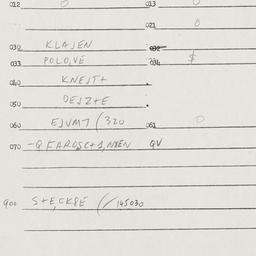 012 0 013 0
021 0
030 KLAJEN 032
033 POLO,VE 034 $
040 KNEJT+
050 DEJZ+E
060 EJVM7 (320 061 0
070 QV
900 S+E,CKPE (/ 145030